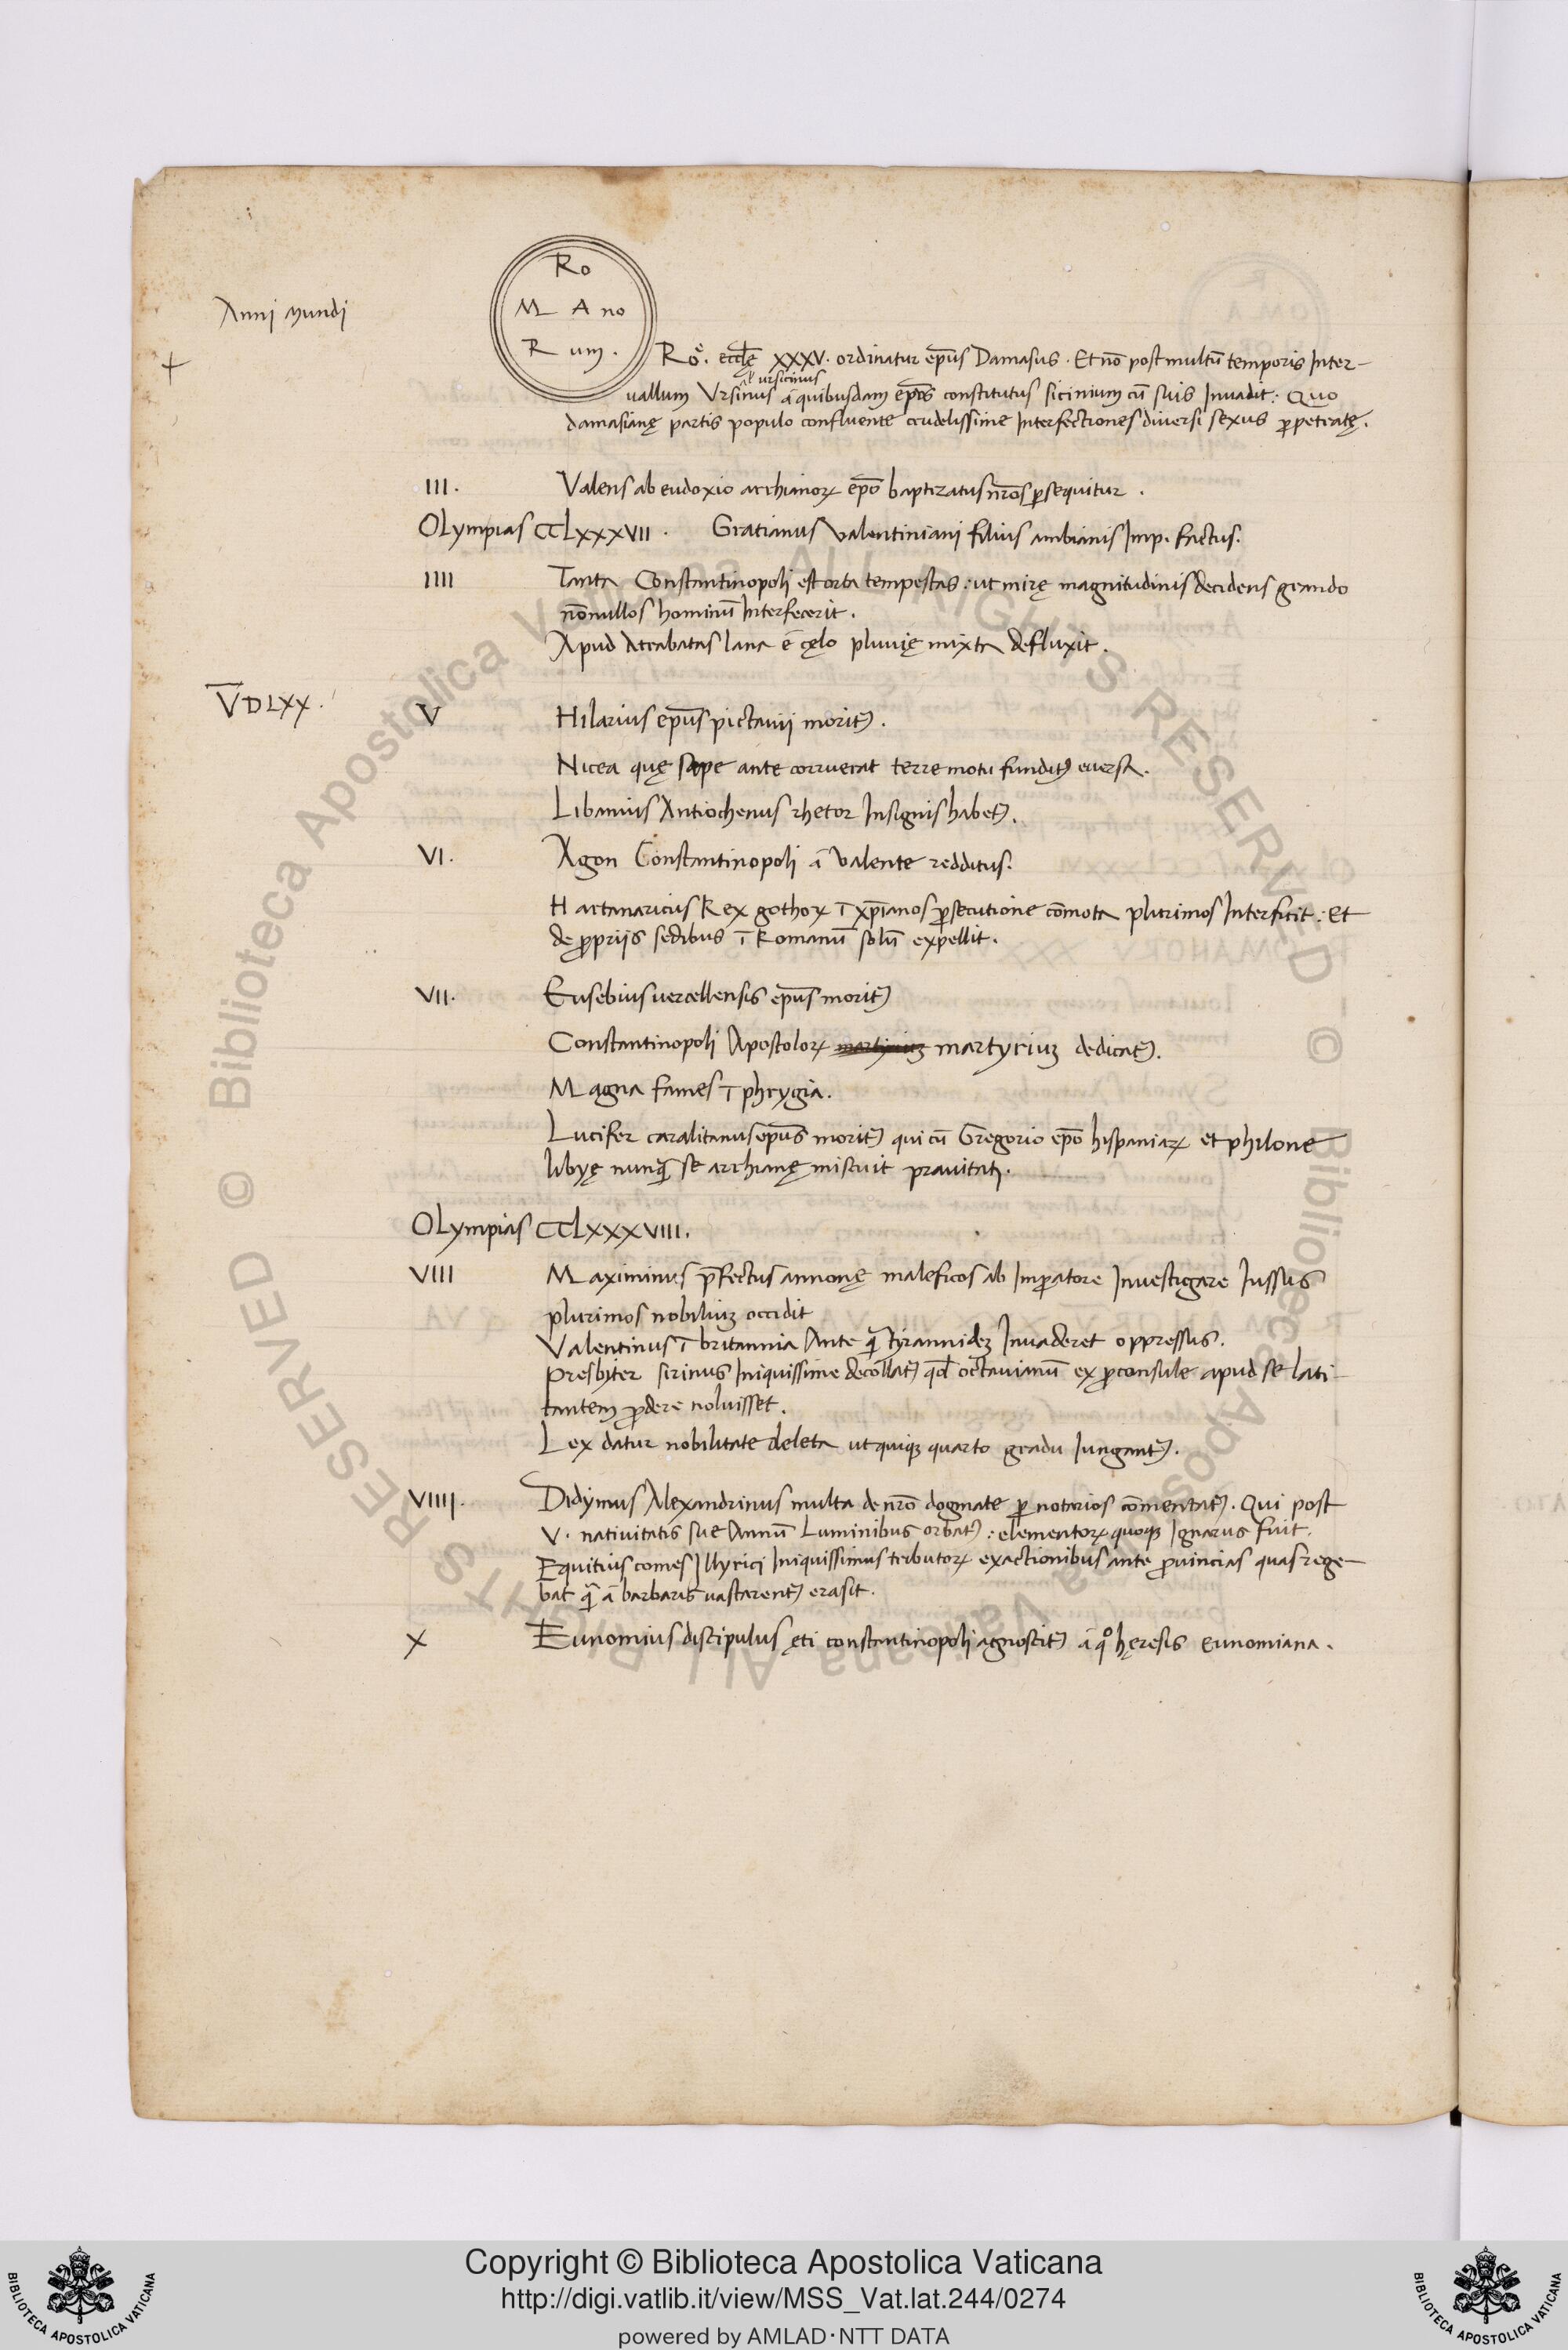 Anni mundi
Ro
M A no
R um.
Roͤ. eccl̄ę XXXV. ordinatur ep̄us Damasus. Et nō post multū temporis Inter-
ul ursicinus
uallum Ursinus ā quibusdam ep̄os constitutus sicinium cū suis Inuadit: Quo
damasianę partis populo confluente crudelissime Interfectiones diuersi sexus ꝑpetratę.
III. Valens ab eudoxio archianoꝝ ep̄o baptizatus nr̄os ꝑsequitur.
OLympias CCLXXXVII. Gratianus Valentiniani filius ambianis Imp. factus.
IIII Tanta Constantinopoli est orta tempestas: ut mirę magnitudinis decidens grando
nōnullos hominū Interfecerit.
Apud Atrabatas lana ē cęlo pluuię mixta defluxit.
V̄DLXX.
V Hilarius ep̄us pictauii morit᷒.
Nicea quę sępe ante corruerat terre motu fundit᷒ euersa.
Libanius Antiochenus rhetor Insignis habet᷒.
VI. Agon Constantinopoli ā Valente redditus.
Hartanaricus Rex gothoꝝ ī xp̄ianos ꝑsecutione cōmota plurimos Interficit: Et
de ꝓpriis sedibus ī Romanū solū expellit.
VII. Eusebius uercellensis ep̄us morit᷒
Constantinopoli Apostoloꝝ martyriuꝫ dedicat᷒.
Magna fames ī phrygia.
Lucifer caralitanus ep̄us morit᷒ qui cū Gregorio ep̄o hispaniaꝝ et philone
libyę nunq̄ se archianę miscuit prauitati.
OLympias CCLXXXVIII.
VIII Maximinus p̄fectus annonę maleficos ab Imꝑatore Inuestigare Iussus
plurimos nobiliuꝫ occidit
Valentinus ī britannia Ante q̄ tyrannideꝫ Inuaderet oppressus.
Presbyter sirinus Iniquissime decollat᷒ qd̄ octauianū ex ꝓconsule apud se lati-
tantem ꝓdere noluisset.
Lex datur nobilitate deleta ut quiqꝫ quarto gradu Iungant᷒.
VIIII. Didymus Alexandrinus multa de nr̄o dogmate ꝑ notarios cōmentat᷒. Qui post
V. natiuitatis sue Annū Luminibus orbat᷒: elementoꝝ quoqꝫ Ignarus fuit.
Equitius comes Illyrici Iniquissimus tributoꝝ exactionibus ante ꝓuincias quas rege-
bat q̄ ā barbaris uastarent᷒ erasit.
X Eunomius discipulus ęti constantinopoli agnoscit᷒ ā qͦ hęresis eunomiana.
© Biblioteca Apostolica Vaticana ALL RIGHTS RESERVED
© Biblioteca Apostolica Vaticana ALL RIGHTS RESERVED
Copyright © Biblioteca Apostolica Vaticana
http://digi.vatlib.it/view/MSS_Vat.lat.244/0274
powered by AMLAD·NTT DATA
BIBLIOTECA APOSTOLICA VATICANA
BIBLIOTECA APOSTOLICA VATICANA